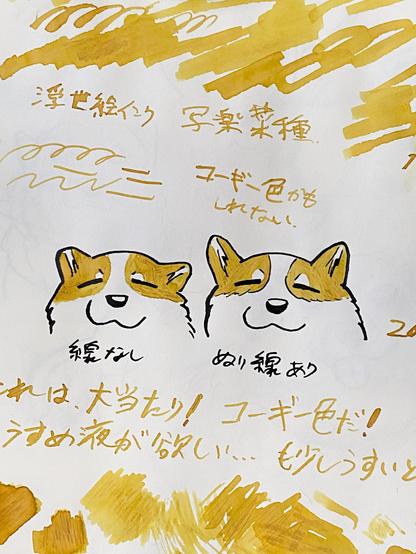 浮世絵インク
写楽菜種.
コーギー色かも
しれない.
線なし
ぬり線あり
これは、大当たり! コーギー色だ!
うすめ液が欲しい… も少しうすいと